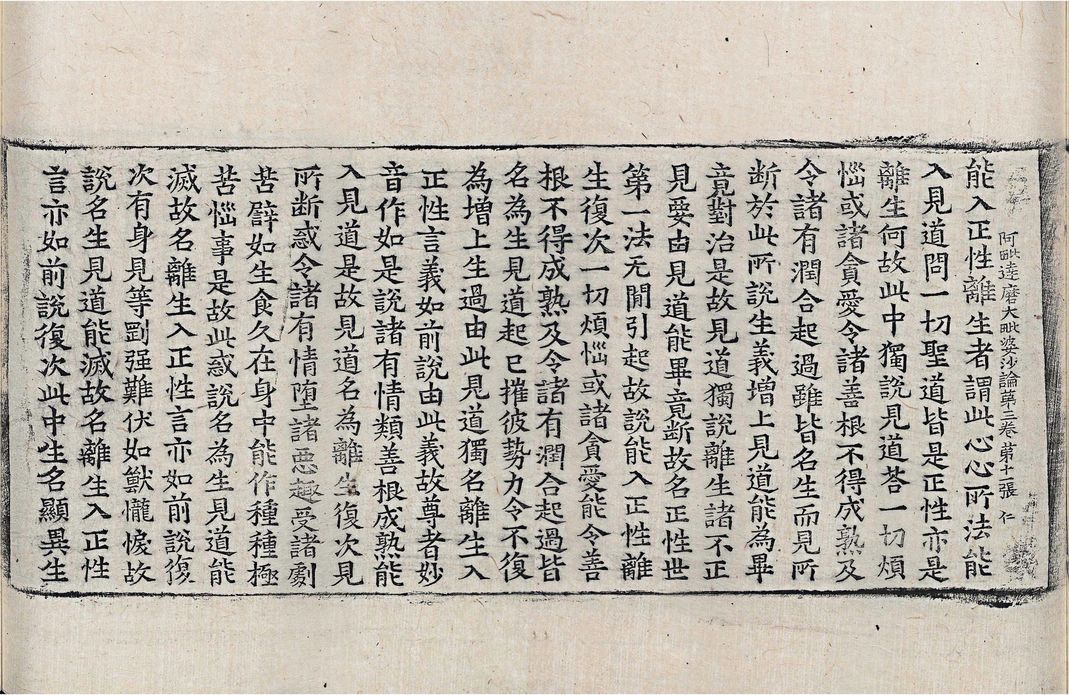 阿毗達磨大毗婆沙論第三卷 第十二張 仁
能入正性離生者謂此心心所法能
入見道問一切聖道皆是正性亦是
離生何故此中獨說見道荅一切煩
惱或諸貪愛令諸善根不得成熟及
令諸有潤合起過雖皆名生而見所
断於此所說生義增上見道能為畢
竟對治是故見道獨說離生諸不正
見要由見道能畢竟断故名正性世
第一法无閒引起故說能入正性離
生復次一切煩惱或諸貪愛能令善
根不得成熟及令諸有潤合起過皆
名為生見道起已摧彼勢力令不復
為增上生過由此見道獨名離生入
正性言義如前說由此義故尊者妙
音作如是說諸有情類善根成熟能
入見道是故見道名為離生復次見
所断惑令諸有情堕諸惡趣受諸劇
苦譬如生食久在身中能作種種極
苦惱事是故此惑說名為生見道能
滅故名離生入正性言亦如前說復
次有身見等剛强難伏如獸㦬悷故
說名生見道能滅故名離生入正性
言亦如前說復次此中生名顯異生